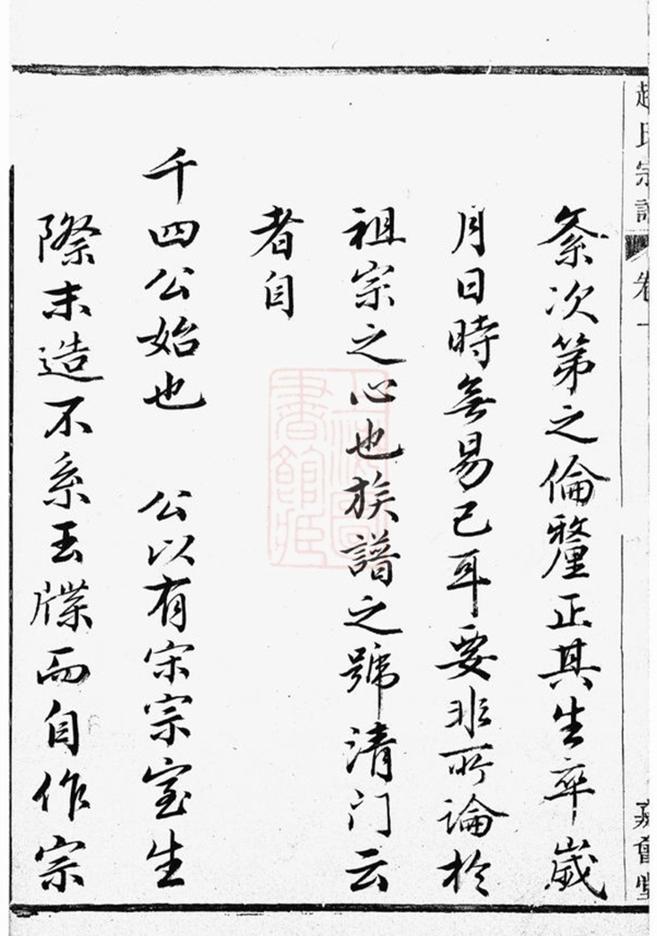 趙氏宗譜 卷一
嘉會堂
紊次第之倫釐正其生卒歲
月日時無易已耳要非所論於
祖宗之心也族譜之號清门云
者自
千四公始也 公以有宋宗室生
際末造不系玉牒而自作宗